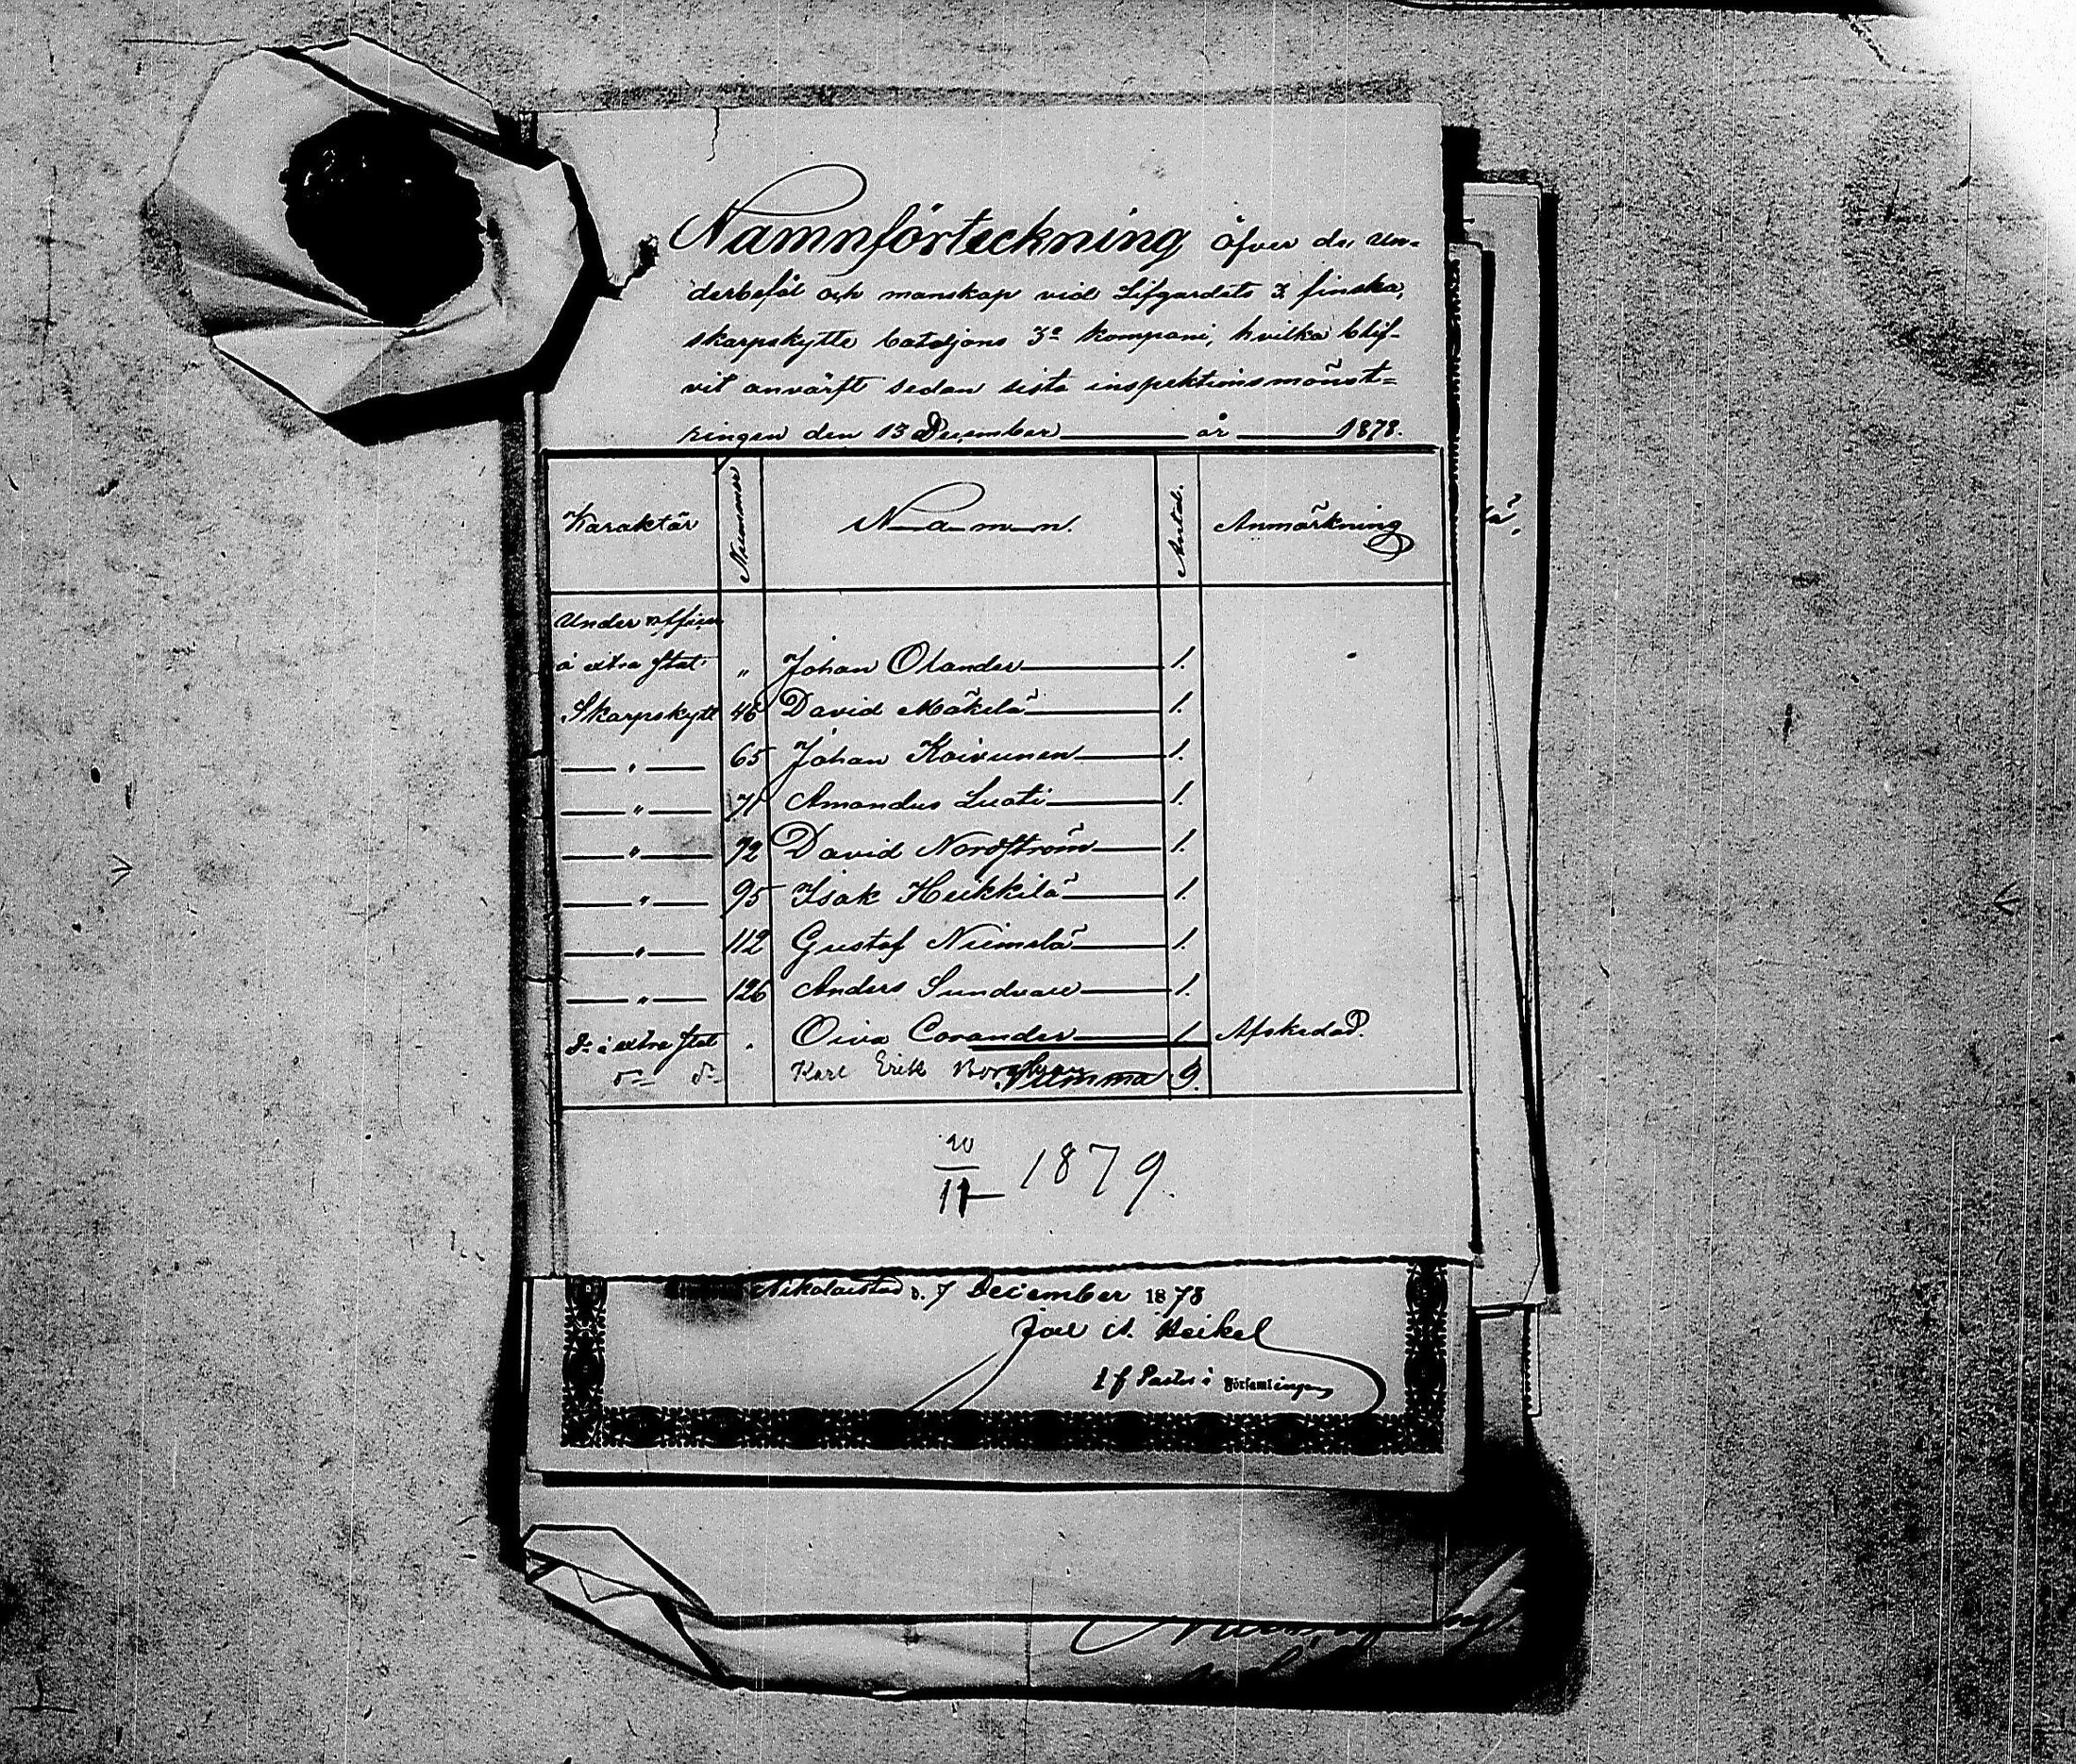 Namnförteckning öfver de Un-
derbefäl och manskap vid Lifgardets 3. finska
skarpskytte bataljons 3e kompani, hvilka blif-
vit anvärft sedan sista inspektionsmönst=
ringen den 13 December år 1878.
Karaktär Nummer Namn. Antal. Anmärkning
Under officer
à extra stat " Johan Olander 1.
Skarpskytt 46 David Mäkelä 1.
" 65 Johan Koivunen 1.
" 71 Amandus Luoti 1.
" 72 David Nordström 1.
" 95 Isak Heikkilä 1.
" 112 Gustaf Niemelä 1.
" 126 Anders Sundvall 1.
do à extra stat Oiva Corander 1 Afskedad.
do do Karl Erik Summa 9.
20
11 1879.
Nikolaistad d. 7 December 1878
Joel A. Heikel
t f Pastor i Församlingen